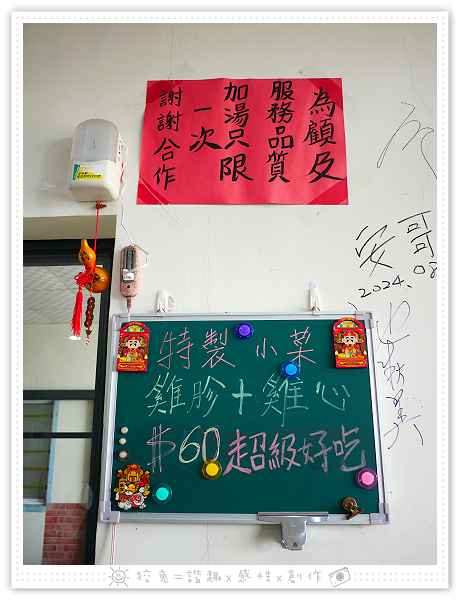 為顧及
服務品質
加湯只限
一次
謝謝合作
安哥
2024.08
特製小菜
雞胗+雞心
$60超級好吃
狡兔=諧趣x感性x創作